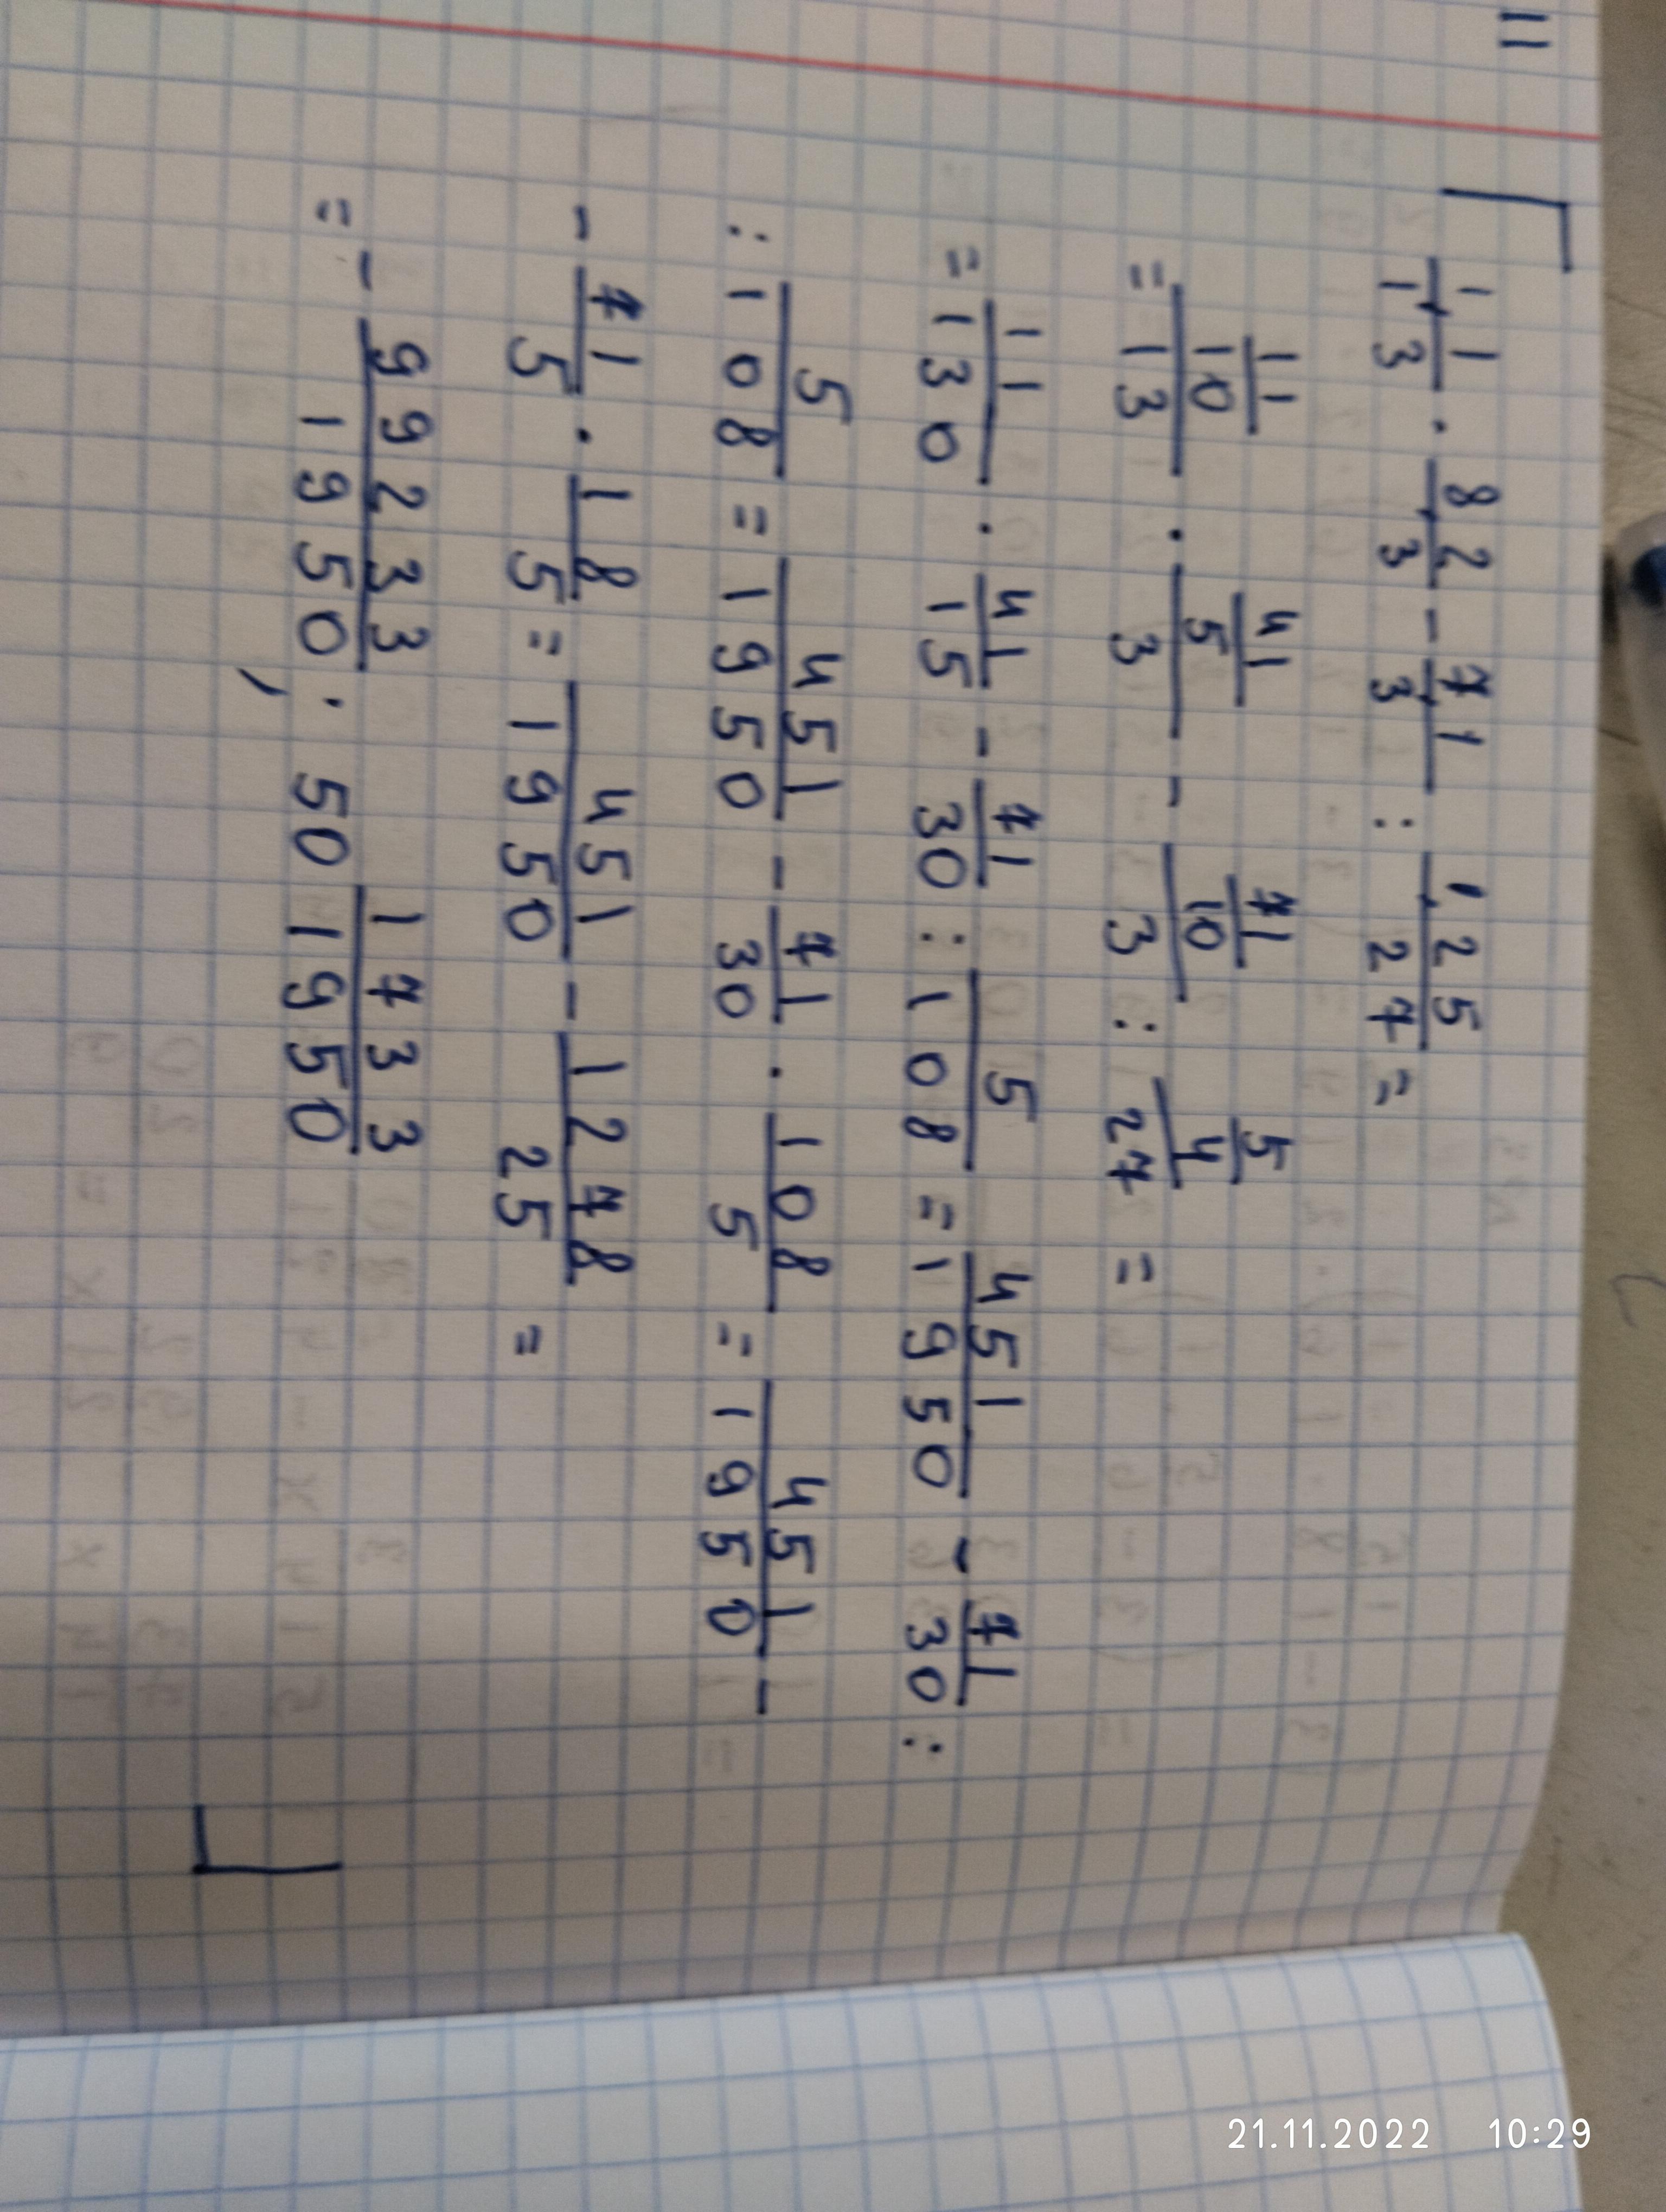 11
1,1/13 · 8,2/3 - 7,1/3 : 1,25/27 =
= 11/10/13 · 41/5/3 - 71/10/3 : 5/4/27 =
= 11/130 · 41/15 - 71/30 : 5/108 = 451/1950 - 71/30 :
: 5/108 = 451/1950 - 71/30 · 108/5 = 451/1950 -
- 71/5 · 18/5 = 451/1950 - 1278/25 =
= - 99233/1950 ; 50 1733/1950
21.11.2022 10:29